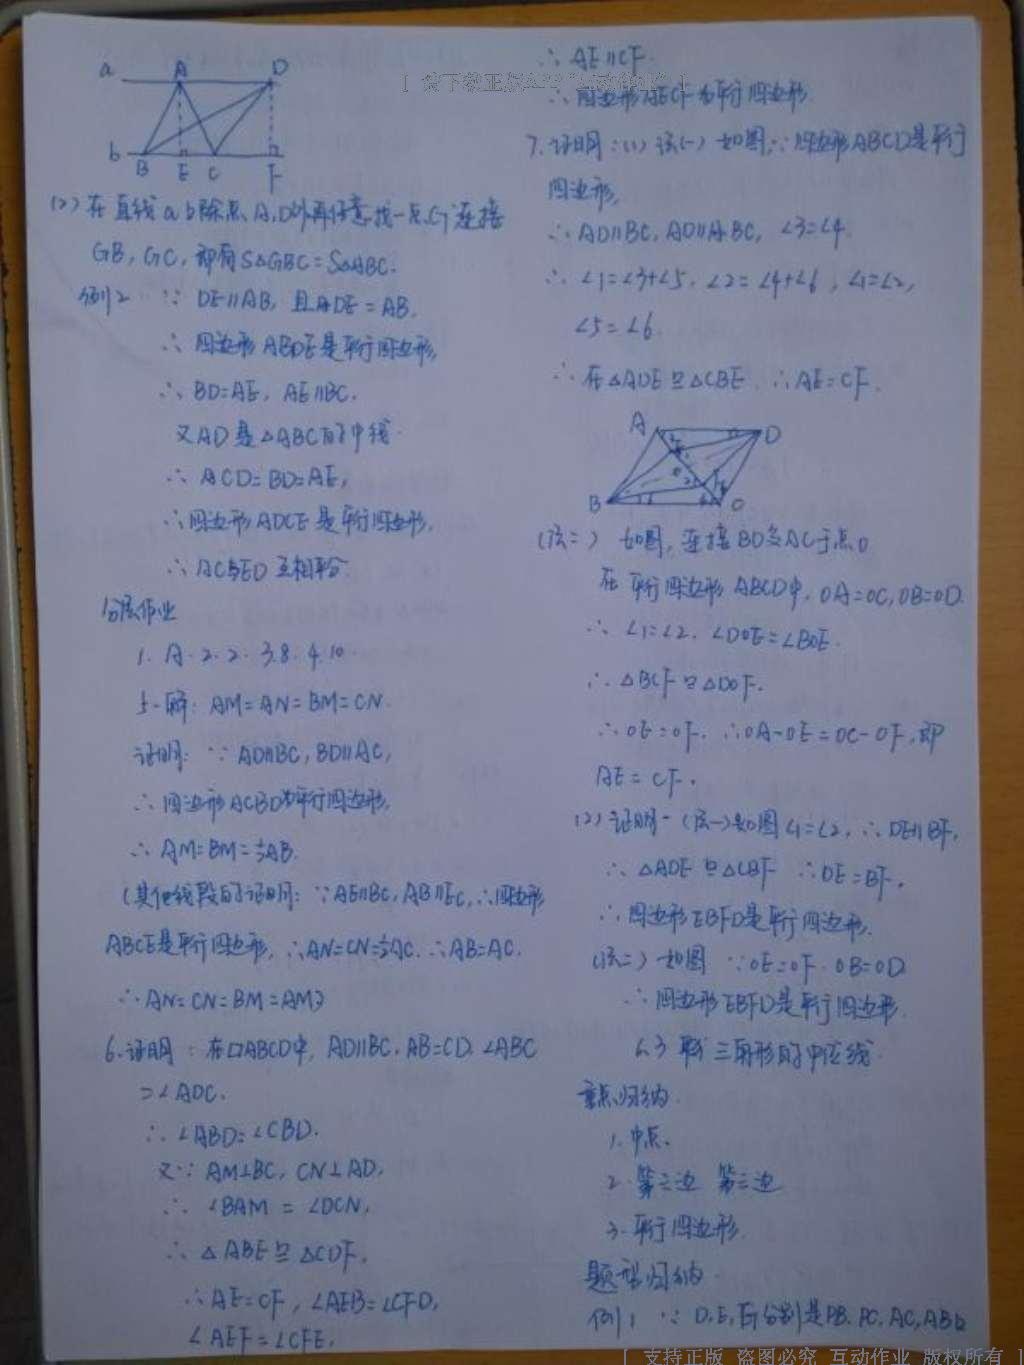 a A D
b B E C F
(2) 在直线a上除点A、D外再任意找一点G连接
GB, GC, 即有S△GBC=S△ABC.
例2 ∵ DE∥AB, 且DE=AB.
∴ 四边形ABDE是平行四边形,
∴ BD=AE, AE∥BC.
又AD是△ABC的中线.
∴ CD=BD=AE,
∴四边形ADCE是平行四边形,
∴ AC与ED互相平分.
分层作业
1. A. 2. 2. 3. 8. 4. 10.
5. 解: AM=AN=BM=CN.
证明: ∵ AD∥BC, BD∥AC,
∴ 四边形ACBD为平行四边形,
∴ AM=BM=½AB.
(其他线段的证明: ∵AE∥BC, AB∥EC, ∴四边形
ABCE是平行四边形, ∴AN=CN=½AC. ∴AB=AC.
∴AN=CN=BM=AM)
6. 证明: 在□ABCD中, AD∥BC. AB=CD. ∠ABC
=∠ADC.
∴ ∠ABD=∠CBD.
又∵ AM⊥BC, CN⊥AD,
∴ ∠BAM=∠DCN,
∴ △ABE≌△CDF,
∴AE=CF, ∠AEB=∠CFD,
∠AEF=∠CFE,
∴ AE∥CF.
∴ 四边形AECF为平行四边形
7. 证明: (1) 法(一) 如图, ∵四边形ABCD是平行
四边形,
∴ AD∥BC, ∠3=∠4.
∴ ∠1=∠3+∠5, ∠2=∠4+∠6, ∠1=∠2,
∠5=∠6.
∴ 在△ADE≌△CBF. ∴AE=CF.
A D
B C
(法二) 如图, 连接BD交AC于点O
在平行四边形ABCD中, OA=OC, OB=OD.
∴ ∠1=∠2. ∠DOE=∠BOE.
∴ △BCF≌△DOF.
∴OE=OF. ∴OA-OE=OC-OF, 即
AE=CF.
(2) 证明: (法一)如图∠1=∠2, ∴DE∥BF,
∴ △ADE≌△CBF ∴DE=BF,
∴ 四边形EBFD是平行四边形.
(法二) 如图 ∵OE=OF. OB=OD
∴四边形EBFD是平行四边形.
6.3 三角形的中位线.
重点归纳.
1. 中点.
2. 第三边 第三边
3. 平行四边形.
题型归纳.
例1 ∵ D, E, F, G分别是PB. PC, AC, AB
[ 支持正版 盗图必究 互动作业 版权所有 ]